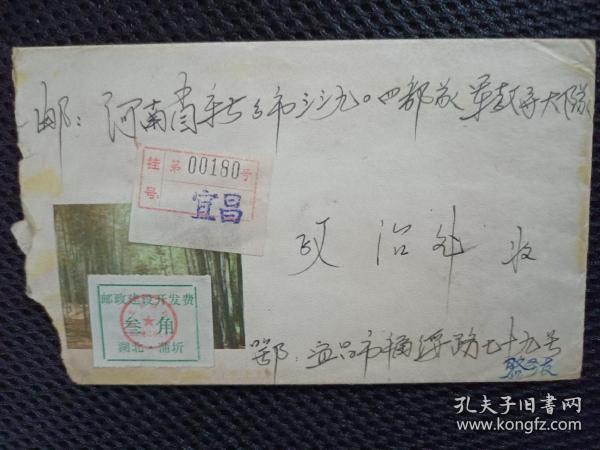 邮：河南省新乡市三三九〇四部队军教导大队
挂号 第00180号
宜昌
政治处 收
邮政建设开发费
叁角
湖北·蒲圻
鄂：宜昌市福绥路七十九号
孔夫子旧书网
www.kongfz.com